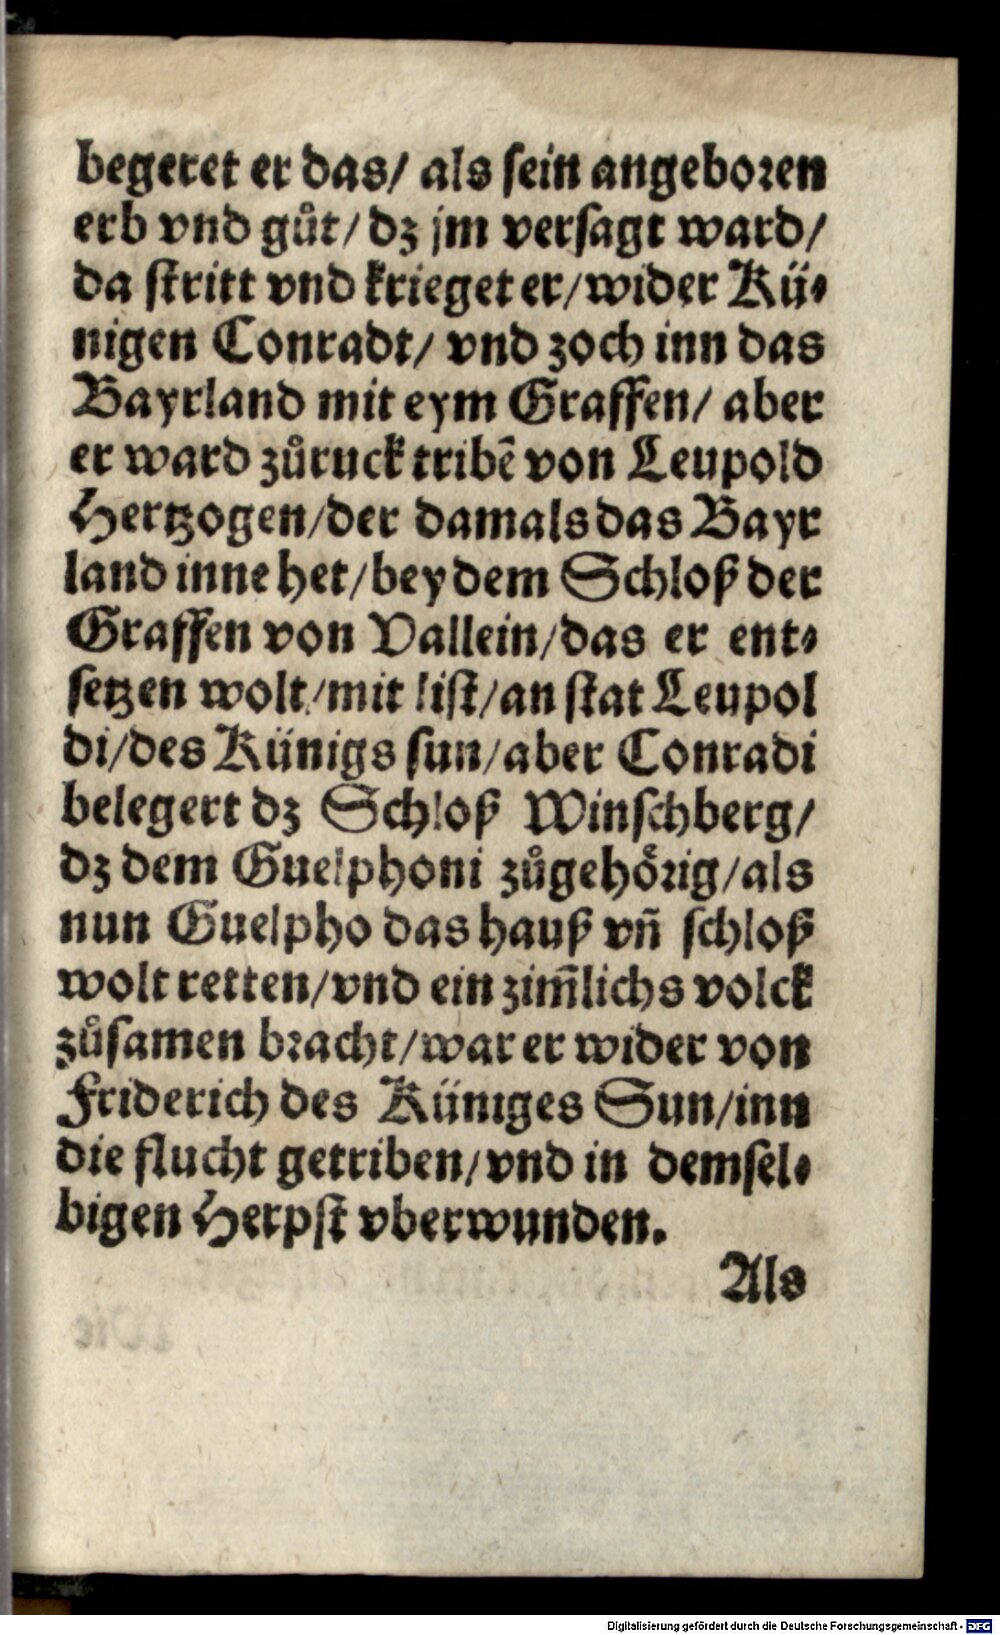 begeret er das/ als sein angeboren
erb vnd gůt/ dz jm versagt ward/
da stritt vnd krieget er/wider Kü⸗
nigen Conradt/ vnd zoch inn das
Bayrland mit eym Graffen/ aber
er ward zůruck tribē von Leupold
Hertzogen/der damals das Bayr
land inne het/bey dem Schloß der
Graffen von Vallein/das er ent⸗
setzen wolt/mit list/an stat Leupol
di/des Künigs sun/aber Conradi
belegert dz Schloß Winschberg/
dz dem Guelphoni zůgehörig/als
nun Guelpho das hauß vñ schloß
wolt retten/vnd ein zim̃lichs volck
zůsamen bracht/war er wider von
Friderich des Küniges Sun/inn
die flucht getriben/vnd in demsel⸗
bigen Herpst vberwunden.
Als
Digitalisierung gefördert durch die Deutsche Forschungsgemeinschaft - DFG